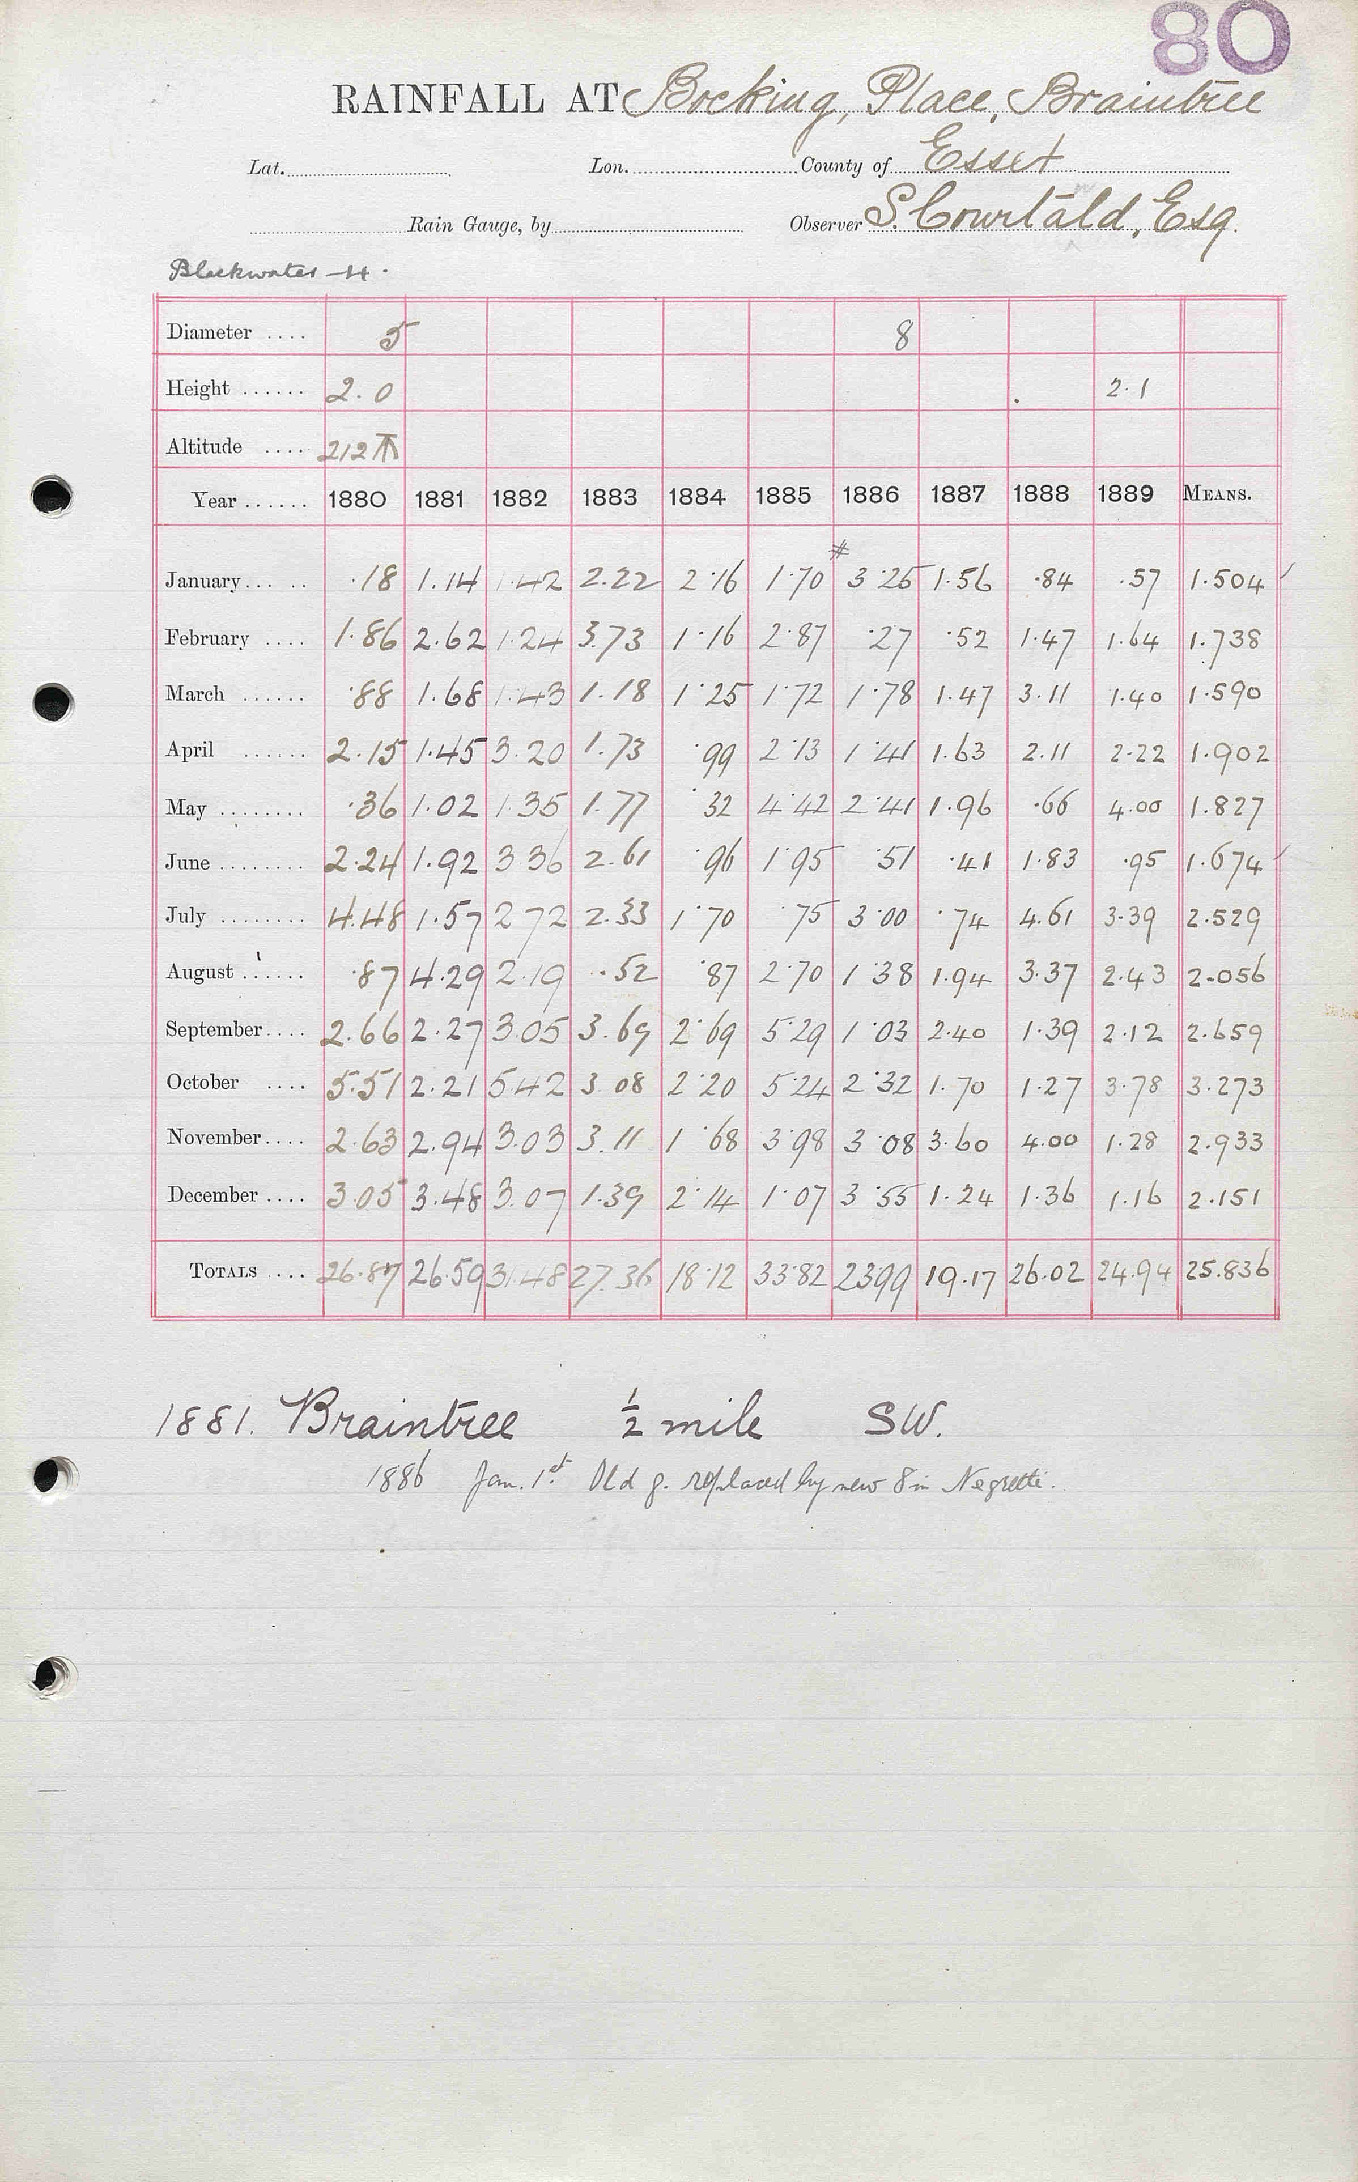 80
RAINFALL AT Bocking, Place, Braintree
Lat. Lon. County of Essex
Rain Gauge, by Observer S. Courtald, Esq.
Blackwater - 14.
Diameter .... 5 8
Height ...... 2.0 2.1
Altitude .... 212
Year ...... 1880 1881 1882 1883 1884 1885 1886 1887 1888 1889 MEANS.
#
January... .. .18 1.14 1.42 2.22 2.16 1.70 3.25 1.56 .84 .57 1.504
February .... 1.86 2.62 1.24 3.73 1.16 2.87 .27 .52 1.47 1.64 1.738
March ...... .88 1.68 1.43 1.18 1.25 1.72 1.78 1.47 3.11 1.40 1.590
April ...... 2.15 1.45 3.20 1.73 .99 2.13 1.41 1.63 2.11 2.22 1.902
May ........ .36 1.02 1.35 1.77 .32 4.42 2.41 1.96 .66 4.00 1.827
June ........ 2.24 1.92 3 36 2.61 .96 1.95 .51 .41 1.83 .95 1.674
July ........ 4.48 1.57 2 72 2.33 1.70 .75 3.00 .74 4.61 3.39 2.529
August ...... .87 4.29 2.19 .52 .87 2.70 1.38 1.94 3.37 2.43 2.056
September.... 2.66 2.27 3.05 3.69 2.69 5.29 1.03 2.40 1.39 2.12 2.659
October .... 5.51 2.21 5 42 3.08 2.20 5.24 2.32 1.70 1.27 3.78 3.273
November.... 2.63 2.94 3.03 3.11 1.68 3.98 3.08 3.60 4.00 1.28 2.933
December .... 3.05 3.48 3.07 1.39 2.14 1.07 3.55 1.24 1.36 1.16 2.151
TOTALS .... 26.87 26.59 31.48 27.36 18.12 33.82 2399 19.17 26.02 24.94 25.836
1881. Braintree ½ mile SW.
1886 Jan. 1st Old g. replaced by new 8 in Negretti.